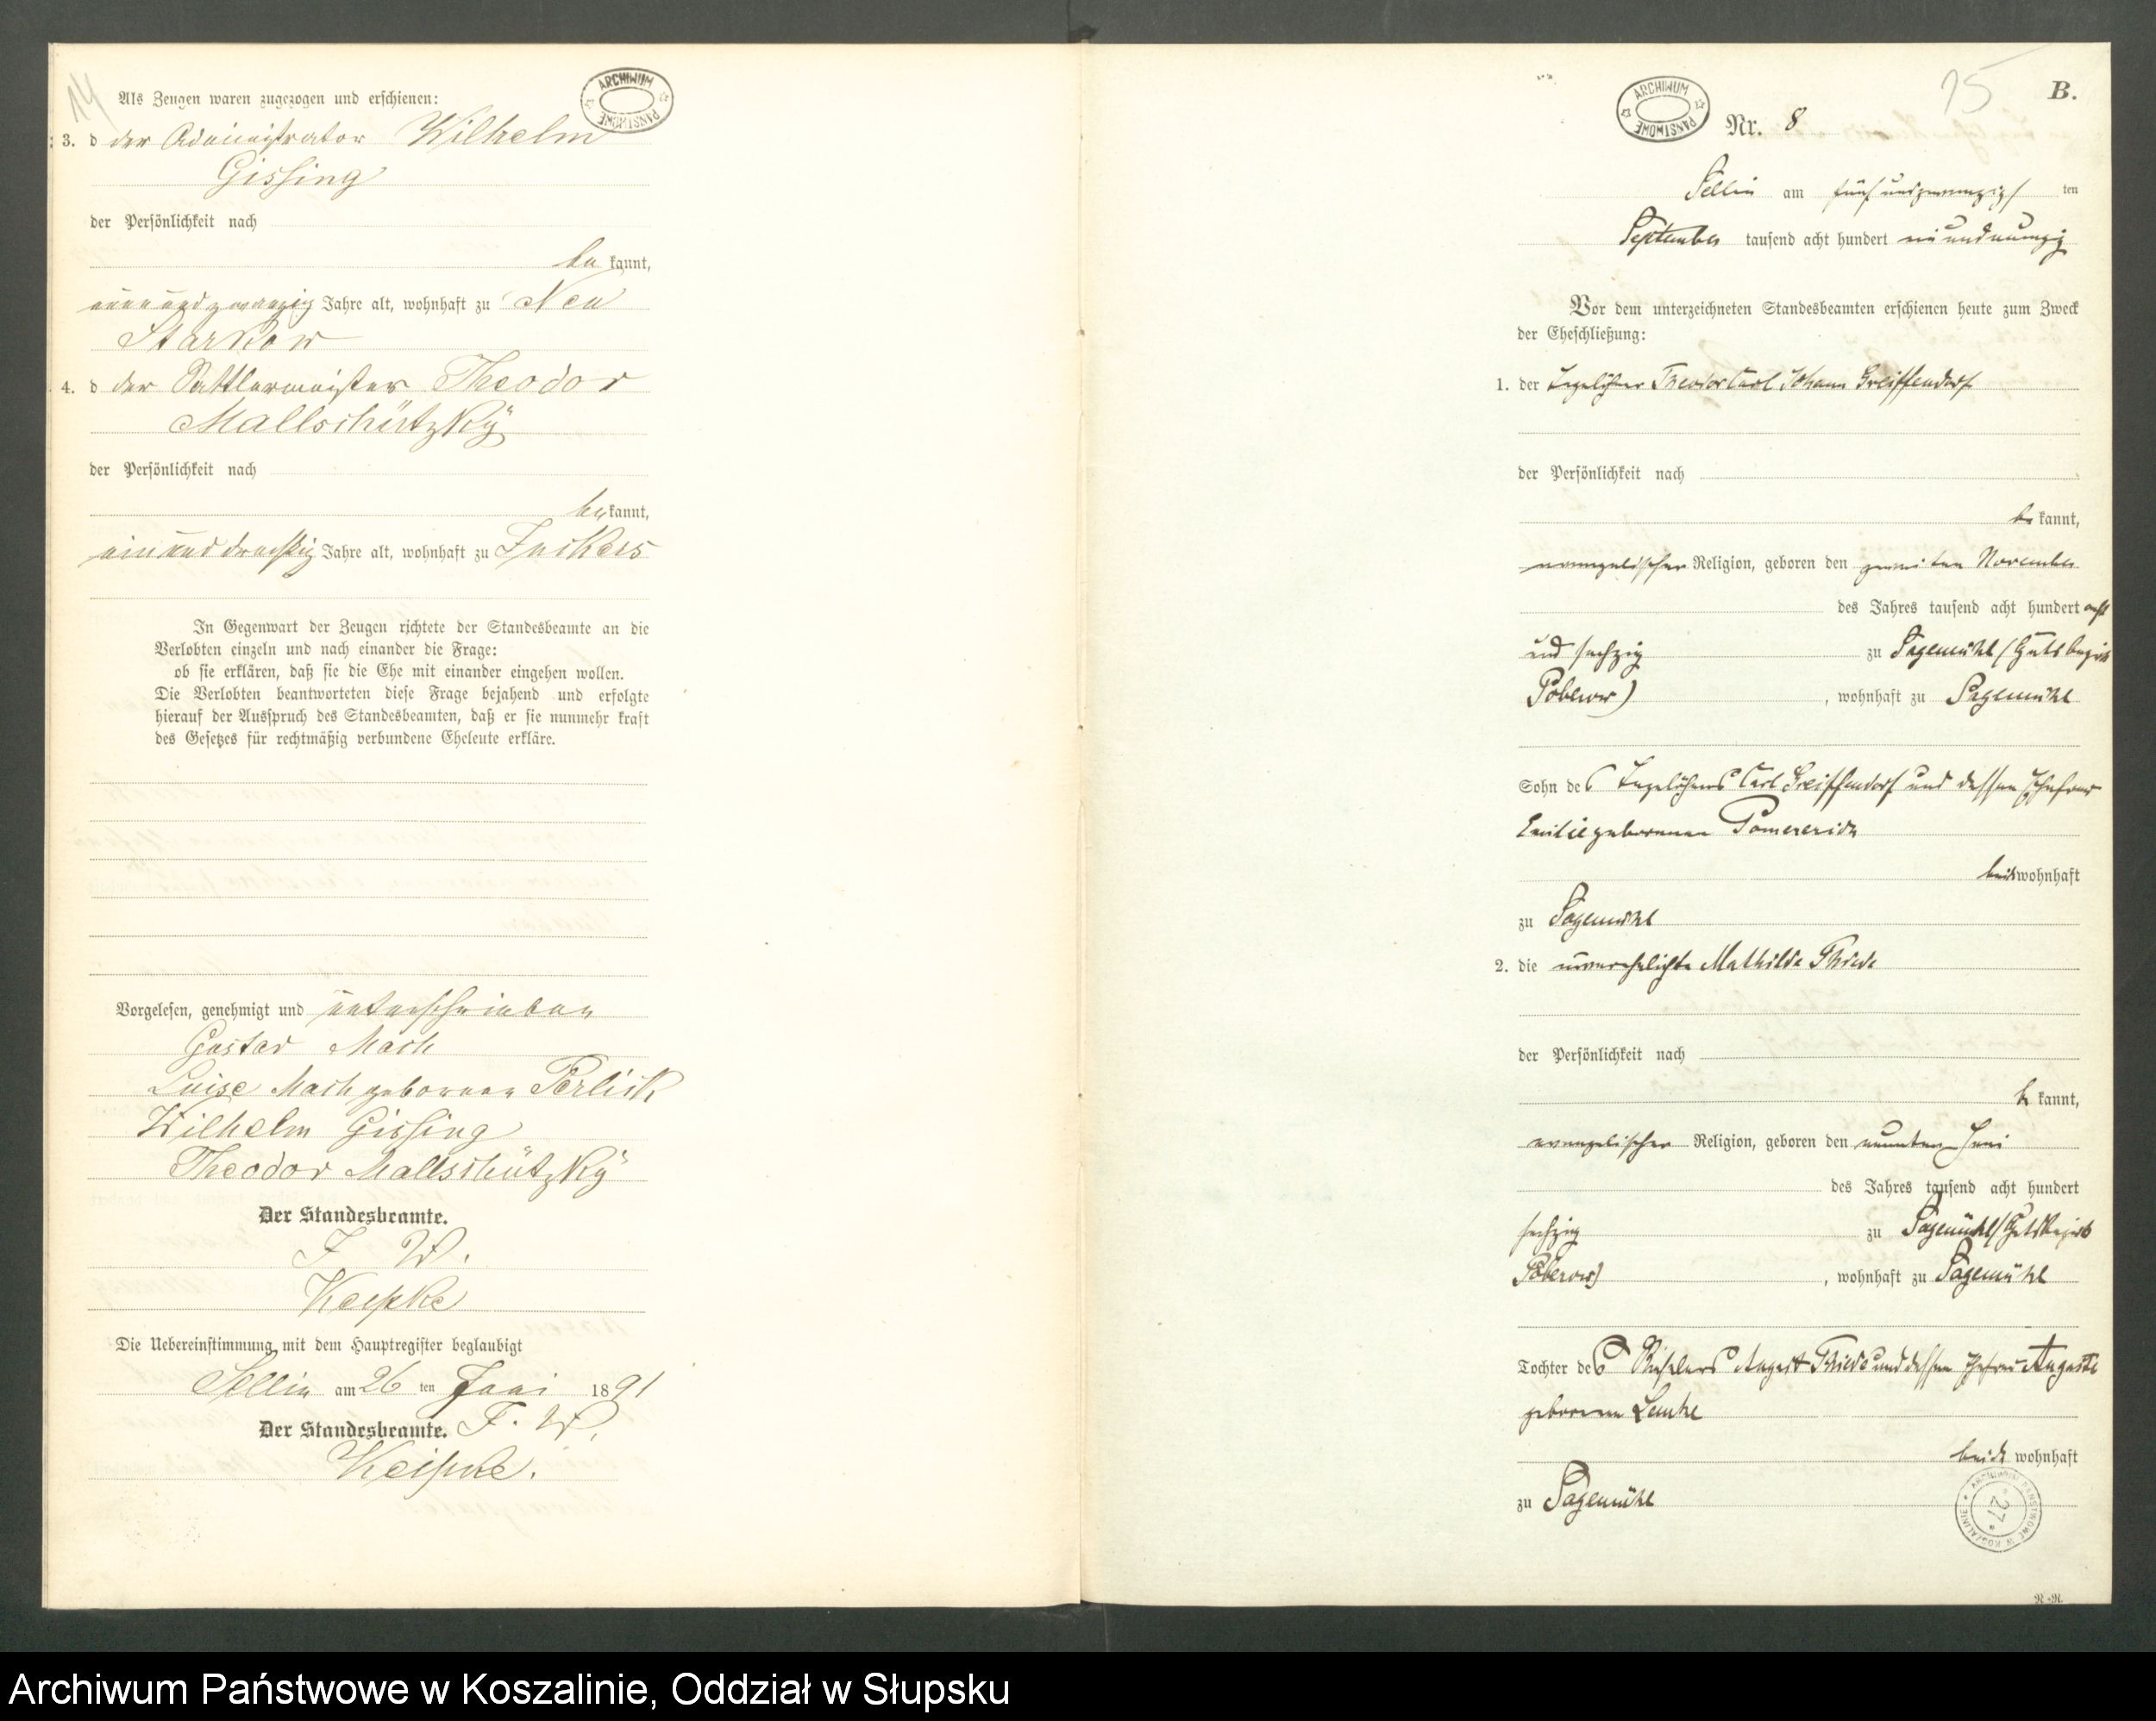 14
Als Zeugen waren zugezogen und erschienen:
ARCHIWUM PAŃSTWOWE
3. d der Administrator Wilhelm
Gissing
der Persönlichkeit nach
be kannt,
neunundzwanzig Jahre alt, wohnhaft zu Neu
Starkow
4. d der Sattlermeister Theodor
Mallschützky
der Persönlichkeit nach
be kannt,
ein und dreißig Jahre alt, wohnhaft zu
In Gegenwart der Zeugen richtete der Standesbeamte an die
Verlobten einzeln und nach einander die Frage:
ob sie erklären, daß sie die Ehe mit einander eingehen wollen.
Die Verlobten beantworteten diese Frage bejahend und erfolgte
hierauf der Ausspruch des Standesbeamten, daß er sie nunmehr kraft
des Gesetzes für rechtmäßig verbundene Eheleute erkläre.
Vorgelesen, genehmigt und unterschrieben
Gustav Mach
Luise Mach geborene Perlick
Wilhelm Gissing
Theodor Mallschützky
Der Standesbeamte.
I. V.
Die Uebereinstimmung mit dem Hauptregister beglaubigt
Sellin am 26 ten Juni 1891
Der Standesbeamte. I. V.
15
B.
ARCHIWUM PAŃSTWOWE
Nr. 8
Sellin am fünfundzwanzigs ten
September tausend acht hundert ein und neunzig
Vor dem unterzeichneten Standesbeamten erschienen heute zum Zweck
der Eheschließung:
1. der Tagelöhner Theodor Carl Johann Greiffendorf
der Persönlichkeit nach
be kannt,
evangelischer Religion, geboren den zweiten November
des Jahres tausend acht hundert acht
und sechzig zu Sagemühl (Gutsbezirk
Poberow) , wohnhaft zu Sagemühl
Sohn des Tagelöhners Carl Greiffendorf und dessen Ehefrau
Emilie geborenen Pomerenick
beide wohnhaft
zu Sagemühl
2. die unverehelichte Mathilde Thiede
der Persönlichkeit nach
be kannt,
evangelischer Religion, geboren den neunten Juni
des Jahres tausend acht hundert
sechzig zu Sagemühl (Gutsbezirk
Poberow) , wohnhaft zu Sagemühl
Tochter des August Thiede und dessen Ehefrau Auguste
geborenen Lemke
beide wohnhaft
zu Sagemühl
ARCHIWUM PAŃSTWOWE W KOSZALINIE 27
R.-R.
Archiwum Państwowe w Koszalinie, Oddział w Słupsku